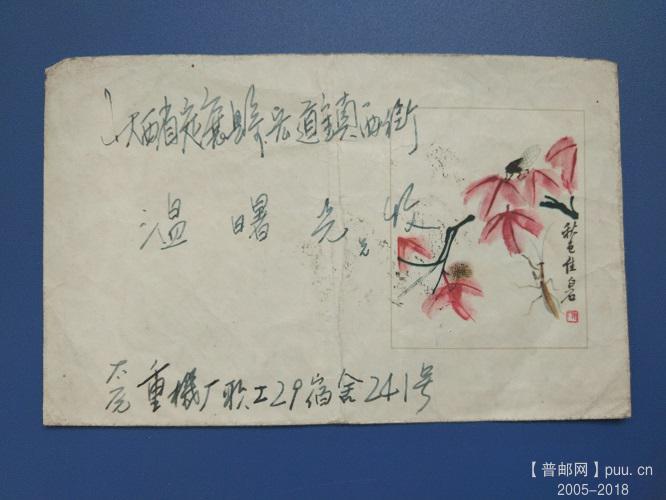 山西省定襄縣宏道鎮西街
温曙光收
兄
秋色佳
白石
太原重機厂职工29宿舍241号
【普邮网】puu.cn
2005-2018